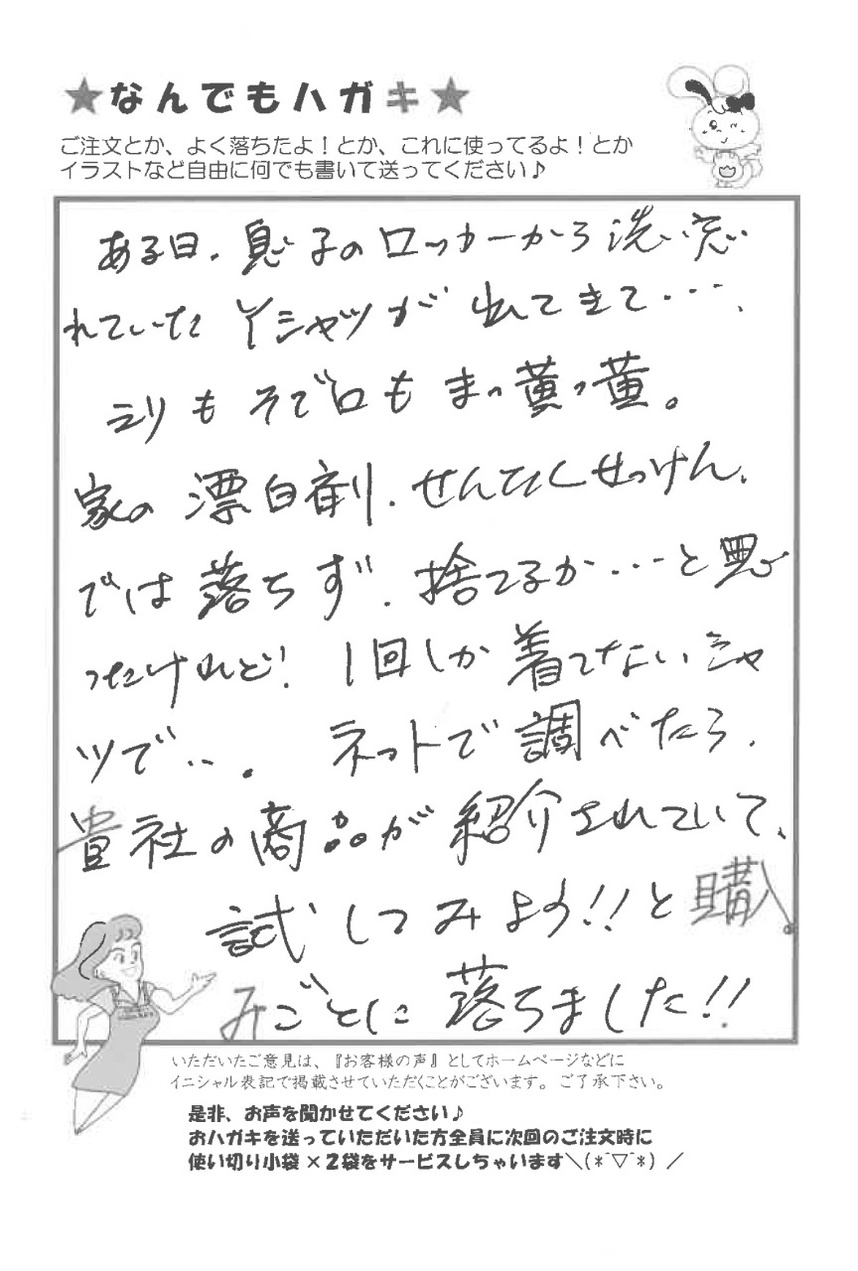 ★なんでもハガキ★
ご注文とか、よく落ちたよ！とか、これに使ってるよ！とか
イラストなど自由に何でも書いて送ってください♪
ある日、息子のロッカーから洗い忘
れていたYシャツが出てきて・・・、
エリもそで口もまっ黄っ黄。
家の漂白剤、せんたくせっけん、
では落ちず、捨てるか・・・と思
ったけれど！1回しか着てないシャ
ツで・・。ネットで調べたら、
貴社の商品が紹介されていて、
試してみよう!!と購入。
みごとに落ちました!!
いただいたご意見は、『お客様の声』としてホームページなどに
イニシャル表記で掲載させていただくことがございます。ご了承下さい。
是非、お声を聞かせてください♪
おハガキを送っていただいた方全員に次回のご注文時に
使い切り小袋×2袋をサービスしちゃいます＼(*¯▽¯*)／